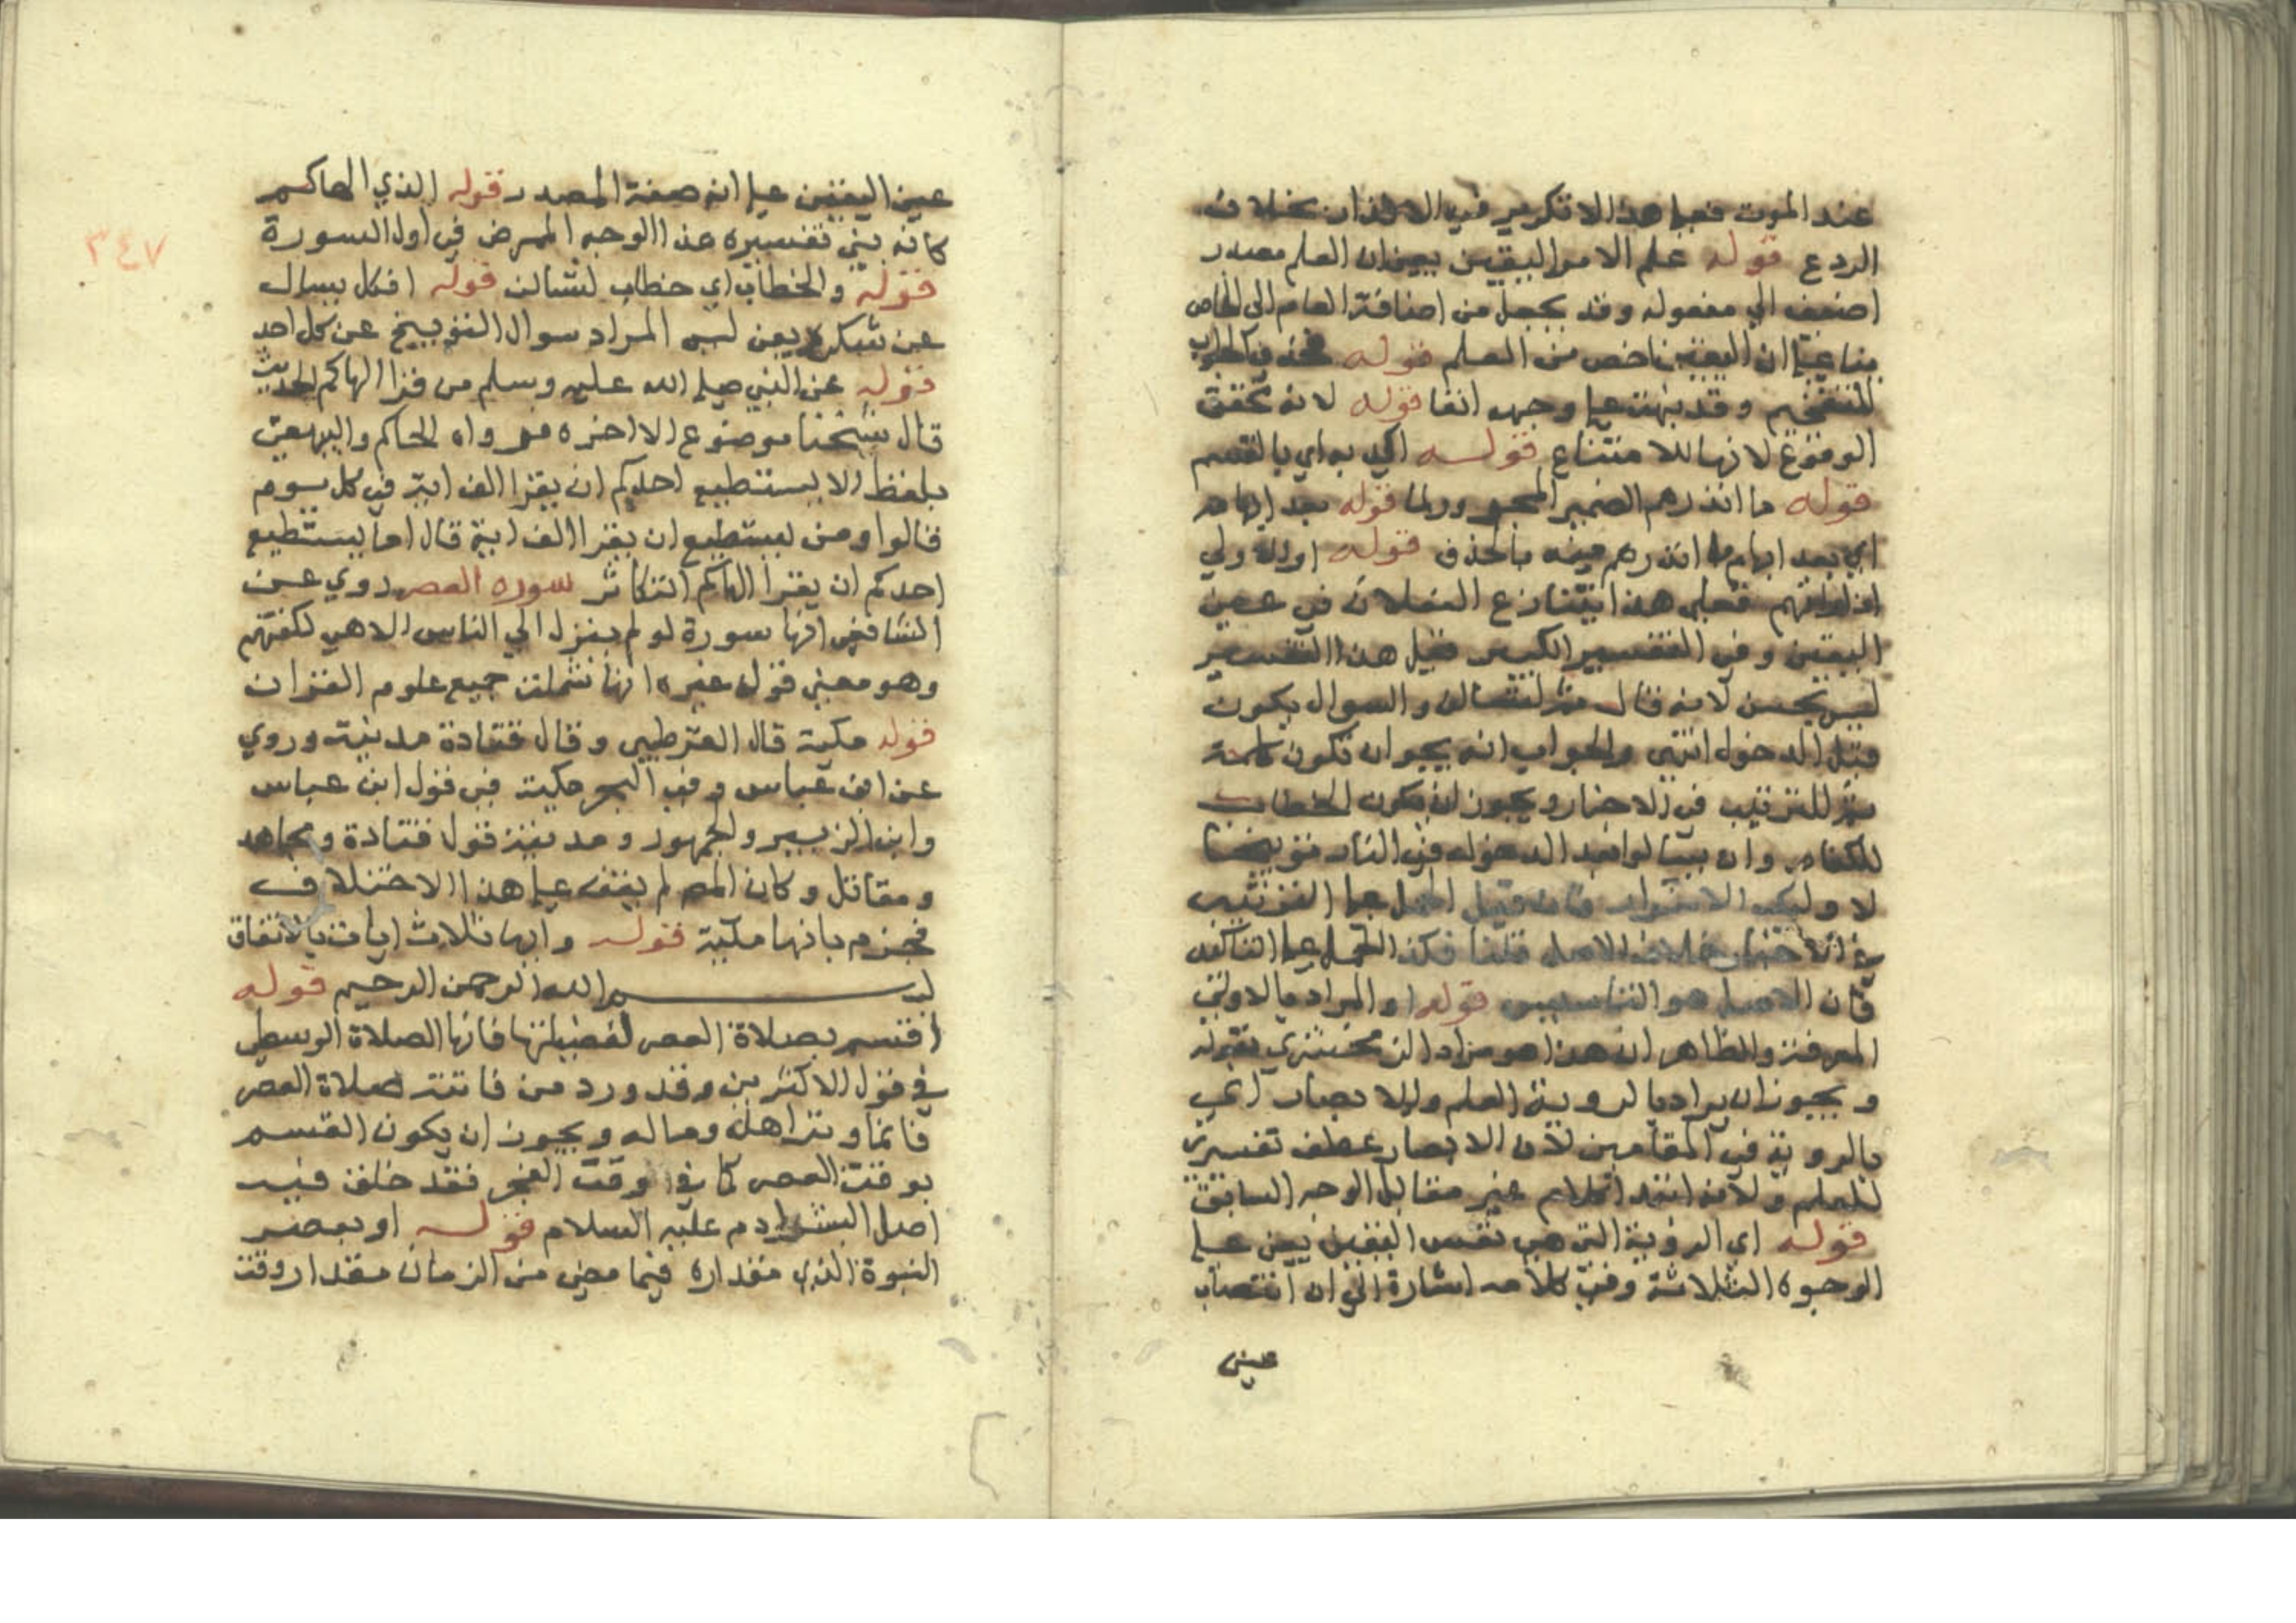 عند الموت فعلى هذا لا تكرير في الانذار بخلاف
الردع قوله علم الامر اليقين يعني ان العلم مصدر
اضيف الي مفعوله وقد يجعل من اضافة العام الى الخاص
بناء علي ان اليقين اخص من العلم قوله فحذف الجواب
للتفخيم وقد نبهت علي وجهه انفا قوله لانه محقق
الوقوع لانها للامتناع قوله اكد به اي بالقسم
قوله ما انذرهم الضمير المجرور لما قوله بعد ابهامه
اي بعد ابهام ما انذرهم منه بالحذف قوله اوالاولي
اذا راتهم فعلى هذا يتنازع الفعلان في عين
اليقين وفي التفسير الكبير قيل هذا التفسير
ليس بحسن لانه قال ثم لتسالن والسوال يكون
قبل الدخول انتهى والجواب انه يجوز ان تكون كلمة
ثم للترتيب في الاخبار ويجوز ان يكون الخطاب
للكفار وان يسالوا بعد الدخول في النار توبيخا
لا وليكن الاستوال فان قيل الحمل علي الترتيب
في الاخبار خلاف الاصل قلنا فكذا الحمل علي التاكيد
فان الاصل هو التاسيس قوله او المراد بالاولي
المعرفة والظاهر ان هذا هو مراد الزمخشري بقوله
ويجوز ان يراد بالروية العلم والابصار اي
بالروية في المقامين لان الابصار عطف تفسير
للعلم ولانه انعد الكلام غير مقابل الوجه السابق
قوله اي الروية التي هي نفس اليقين يعني علي
الوجوه الثلاثة وفي كلامه اشارة الي ان انتصاب
عين
٣٤٧
عين اليقين علي انه صفة المصدر قوله الذي الهاكم
كانه بني تفسيره هذا الوجه الممرض في اول السورة
قوله والخطاب اي خطاب لتسالن قوله اذ كل يسال
عن شكره يعني ليس المراد سوال التوبيخ عن كل احد
قوله عن النبي صلى الله عليه وسلم من قرا الهاكم الحديث
قال شيخنا موضوع الا اخره فرواه الحاكم والبيهقي
بلفظ الا يستطيع احدكم ان يقرا الف اية في كل يوم
قالوا ومن يستطيع ان يقرا الف اية قال اما يستطيع
احدكم ان يقرا الهاكم التكاثر سورة العصر روي عن
الشافعي انها سورة لو لم ينزل الي الناس الا هي لكفتهم
وهو معني قول غيره انها شملت جميع علوم القران
قوله مكية قال القرطبي وقال قتادة مدنية وروي
عن ابن عباس وفي البحر مكية في قول ابن عباس
وابن الزبير والجمهور ومدنية قول قتادة ومجاهد
ومقاتل وكان المص لم يقف علي هذا الاختلاف
فجزم بانها مكية قوله وايها ثلاث ايات بالاتفاق
بسم الله الرحمن الرحيم قوله
اقسم بصلاة العصر لفضيلتها فانها الصلاة الوسطي
في قول الاكثرين وقد ورد من فاتته صلاة العصر
فانما وتر اهله وماله ويجوز ان يكون القسم
بوقت العصر كما في وقت الفجر فقد خلق فيه
اصل البشر ادم عليه السلام قوله او بعصر
النبوة الذي مقداره فيما مضي من الزمان مقدار وقت